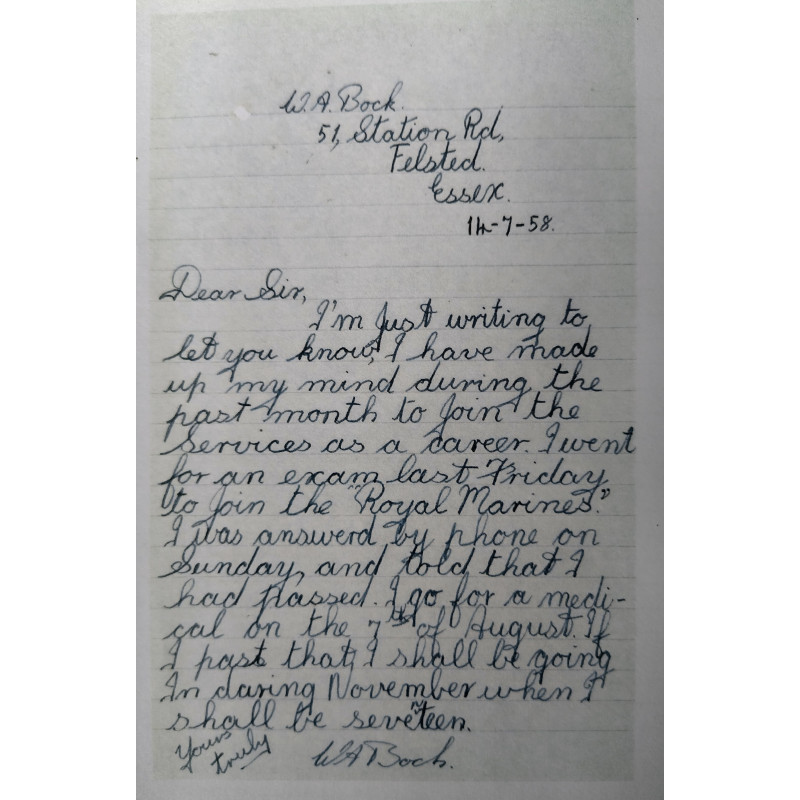 W.A. Bock.
51, Station Rd,
Felsted.
Essex.
14-7-58.
Dear Sir,
I'm Just writing to
let you know, I have made
up my mind during the
past month to Join the
Services as a career. I went
for an exam last Friday
to Join the "Royal Marines."
I was answerd by phone on
Sunday, and told that I
had passed. I go for a medi-
cal on the 7th of August. If
I past that, I shall be going
In daring November when I
shall be seventeen.
Yours truly
W A Bock.